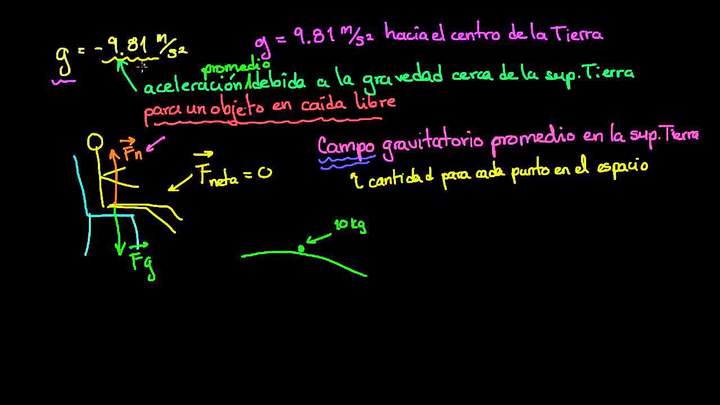 g = -9.81 m/s²
g = 9.81 m/s² hacia el centro de la Tierra
promedio
aceleración debida a la gravedad cerca de la sup. Tierra
para un objeto en caída libre
Campo gravitatorio promedio en la sup. Tierra
cantidad para cada punto en el espacio
Fn
Fneta = 0
Fg
10 kg